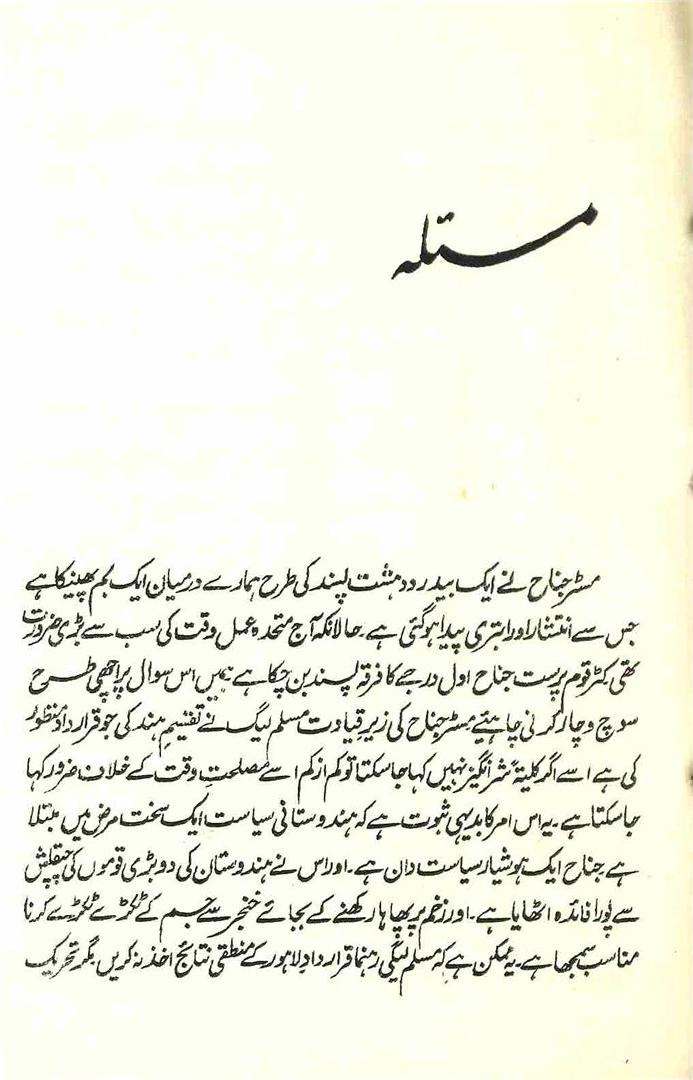 مسئلہ
مسٹر جناح نے ایک بیدرد دہشت پسند کی طرح ہمارے درمیان ایک بم پھینکا ہے
جس سے انتشار اور ابتری پیدا ہوگئی ہے۔ حالانکہ آج متحدہ عمل وقت کی سب سے بڑی ضرورت
تھی کٹر قوم پرست جناح اول درجے کا فرقہ پسند بن چکا ہے ہمیں اس سوال پر اچھی طرح
سوچ وچار کرنی چاہئیے مسٹر جناح کی زیرِ قیادت مسلم لیگ نے تقسیمِ ہند کی جو قرار داد منظور
کی ہے اسے اگر کلیۃً شر انگیز نہیں کہا جا سکتا تو کم از کم اسے مصلحتِ وقت کے خلاف ضرور کہا
جا سکتا ہے۔ یہ اس امر کا بدیہی ثبوت ہے کہ ہندوستانی سیاست ایک سخت مرض میں مبتلا
ہے جناح ایک ہوشیار سیاست دان ہے۔ اور اس نے ہندوستان کی دو بڑی قوموں کی چپقلش
سے پورا فائدہ اٹھایا ہے۔ اور زخم پر پھاہا رکھنے کے بجائے خنجر سے جسم کے ٹکڑے ٹکڑے کرنا
مناسب سمجھا ہے۔ یہ ممکن ہے کہ مسلم لیگی رہنما قرار دادِ لاہور کے منطقی نتائج اخذ نہ کریں مگر تحریک